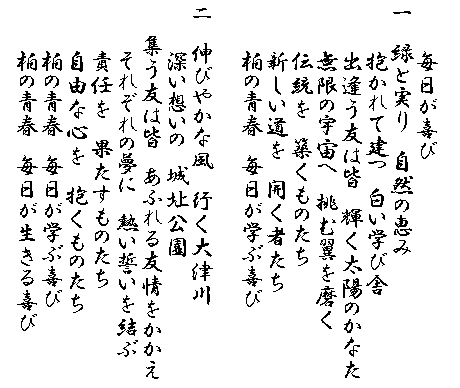 毎日が喜び
一
緑と実り　自然の恵み
抱かれて建つ　白い学び舎
出逢う友は皆　輝く太陽のかなた
無限の宇宙へ　挑む翼を磨く
伝統を　築くものたち
新しい道を　開く者たち
柏の青春　毎日が学ぶ喜び
二
伸びやかな風　行く大津川
深い想いの　城址公園
集う友は皆　あふれる友情をかかえ
それぞれの夢に　熱い誓いを結ぶ
責任を　果たすものたち
自由な心を　抱くものたち
柏の青春　毎日が学ぶ喜び
柏の青春　毎日が生きる喜び